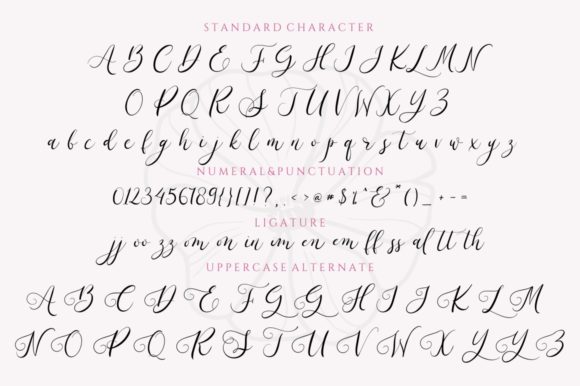 STANDARD CHARACTER
A B C D E F G H I J K L M N
O P Q R S T U V W X Y Z
a b c d e f g h i j k l m n o p q r s t u v w x y z
NUMERAL&PUNCTUATION
0123456789{}[]!?,.<>@#$£^&*()_+-=
LIGATURE
jj oo zz om on in un en em ff ss al tt th
UPPERCASE ALTERNATE
A B C D E F G G H I J K L M
N O P Q R S T U V W X Y Y Z